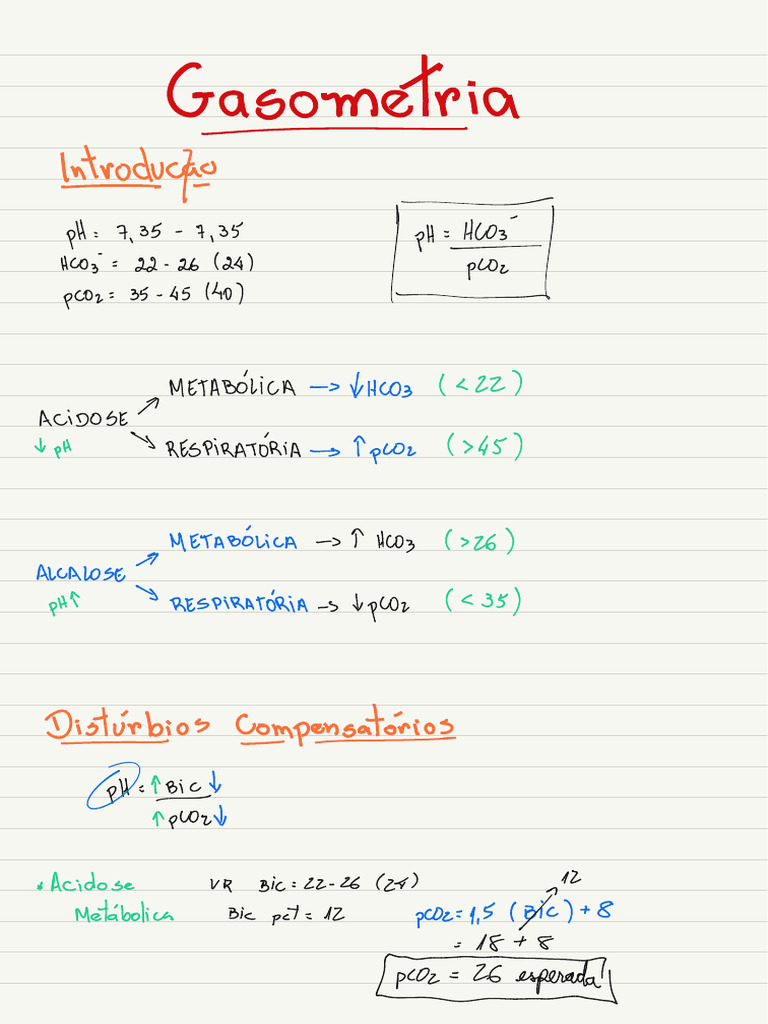 Gasometria
Introdução
pH = 7,35 - 7,35
HCO3⁻ = 22 - 26 (24)
pCO2 = 35 - 45 (40)
pH = HCO3⁻
pCO2
ACIDOSE
↓ pH
METABÓLICA → ↓HCO3 (<22)
RESPIRATÓRIA → ↑pCO2 (>45)
ALCALOSE
pH↑
METABÓLICA → ↑ HCO3 (>26)
RESPIRATÓRIA → ↓pCO2 (<35)
Distúrbios Compensatórios
pH = ↑Bic↓
↑pCO2↓
• Acidose
Metábolica
VR Bic = 22-26 (24)
Bic pct = 12
12
pCO2 = 1,5 (Bic) + 8
= 18 + 8
pCO2 = 26 esperada!